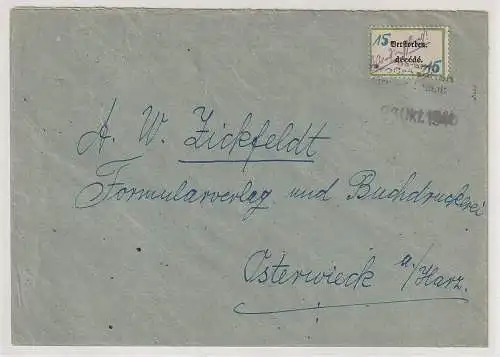 15 Verstorben.
décédé. 15
Okt. 194
A. W. Zickfeldt
Formularverlag und Buchdruckerei
Osterwieck a/Harz.